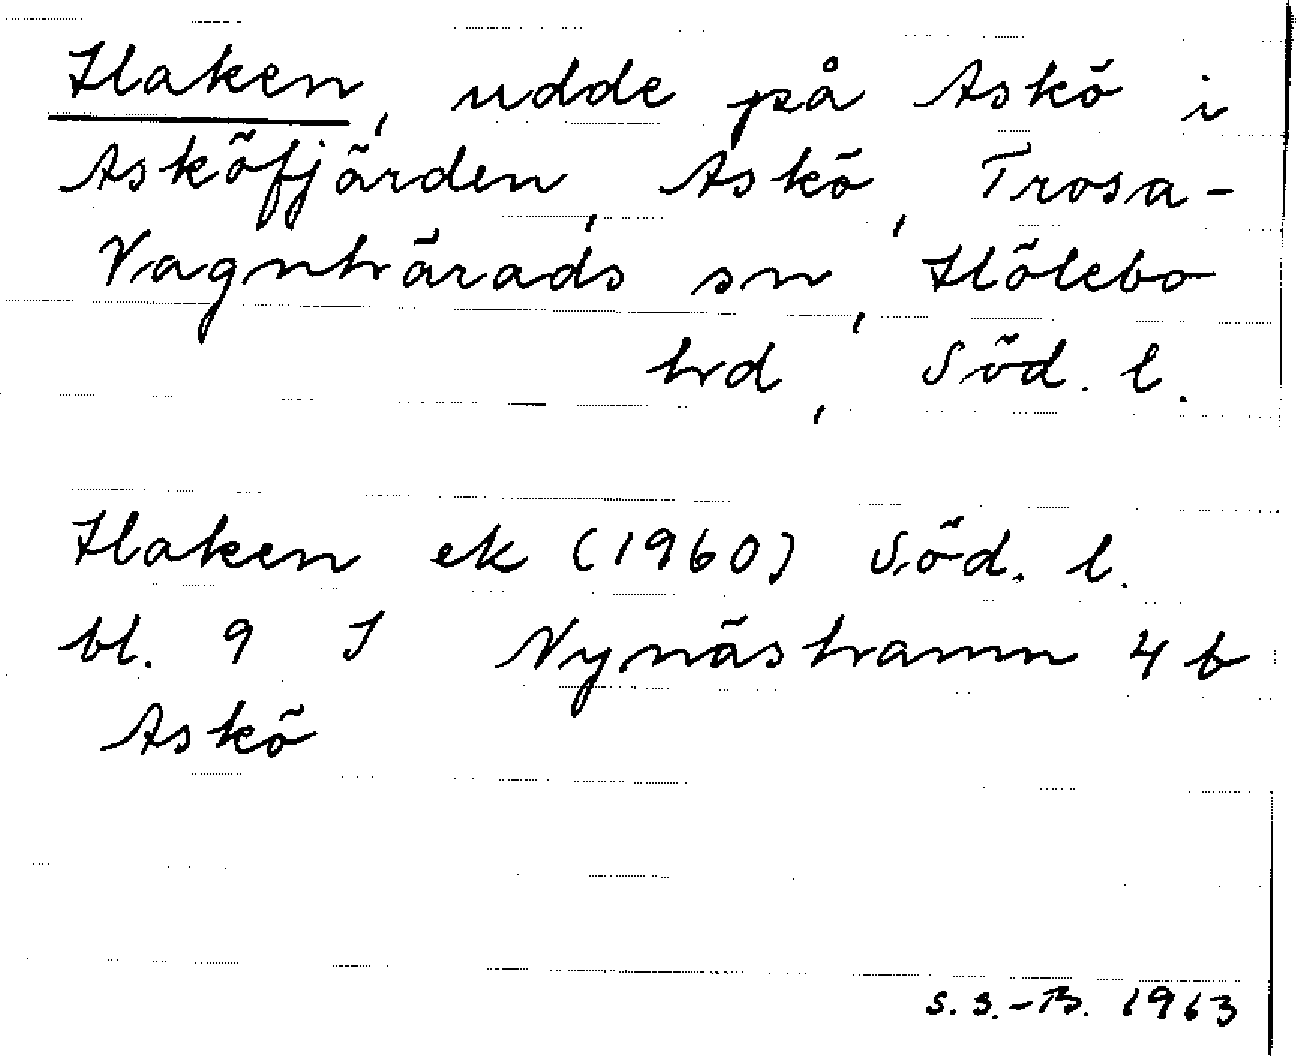 Haken, udde på Askö i
Asköfjärden, Askö, Trosa-
Vagnhärads sn, Hölebo
hrd, Söd. l.
Haken ek (1960) Söd. l.
bl. 9 J Nynäshamn 4 b
Askö
S. S.-B. 1963